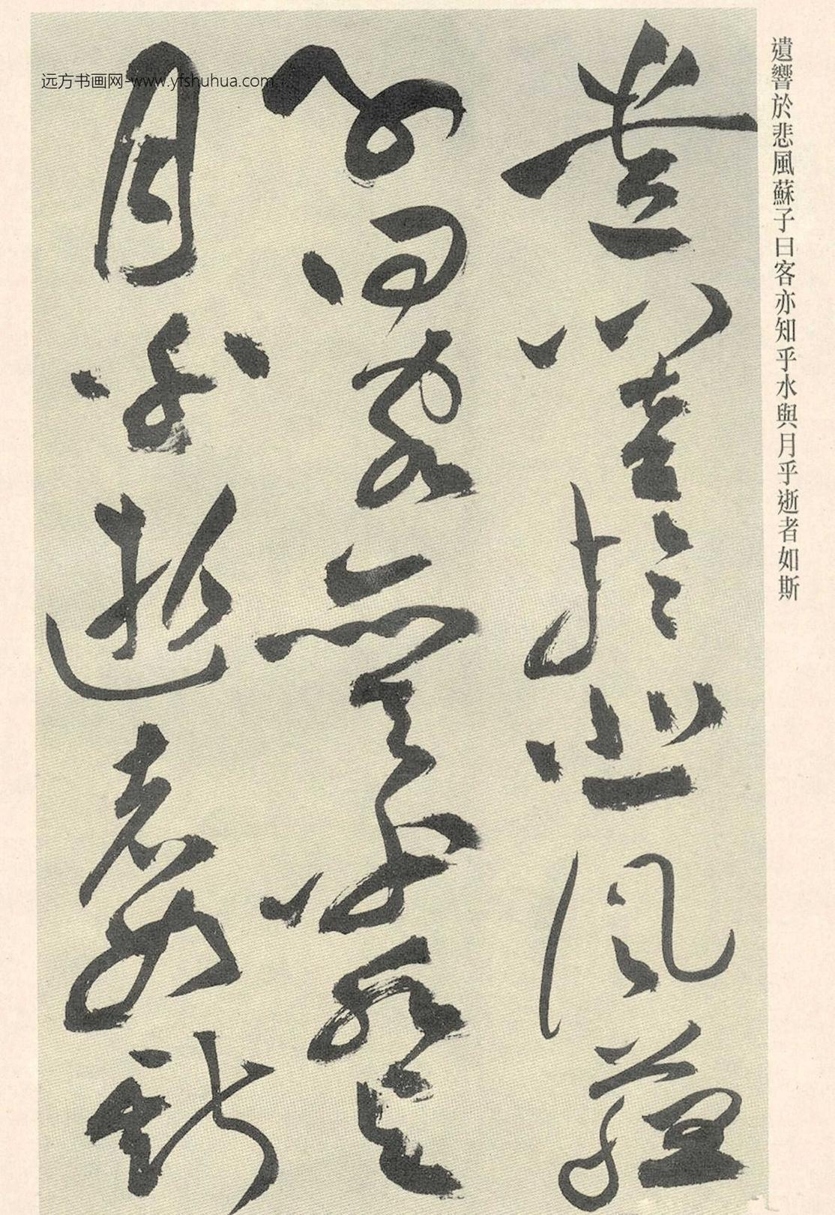 遺響於悲風蘇
子曰客亦知乎水與
月乎逝者如斯
遺響於悲風蘇子曰客亦知乎水與月乎逝者如斯
远方书画网-www.yfshuhua.com